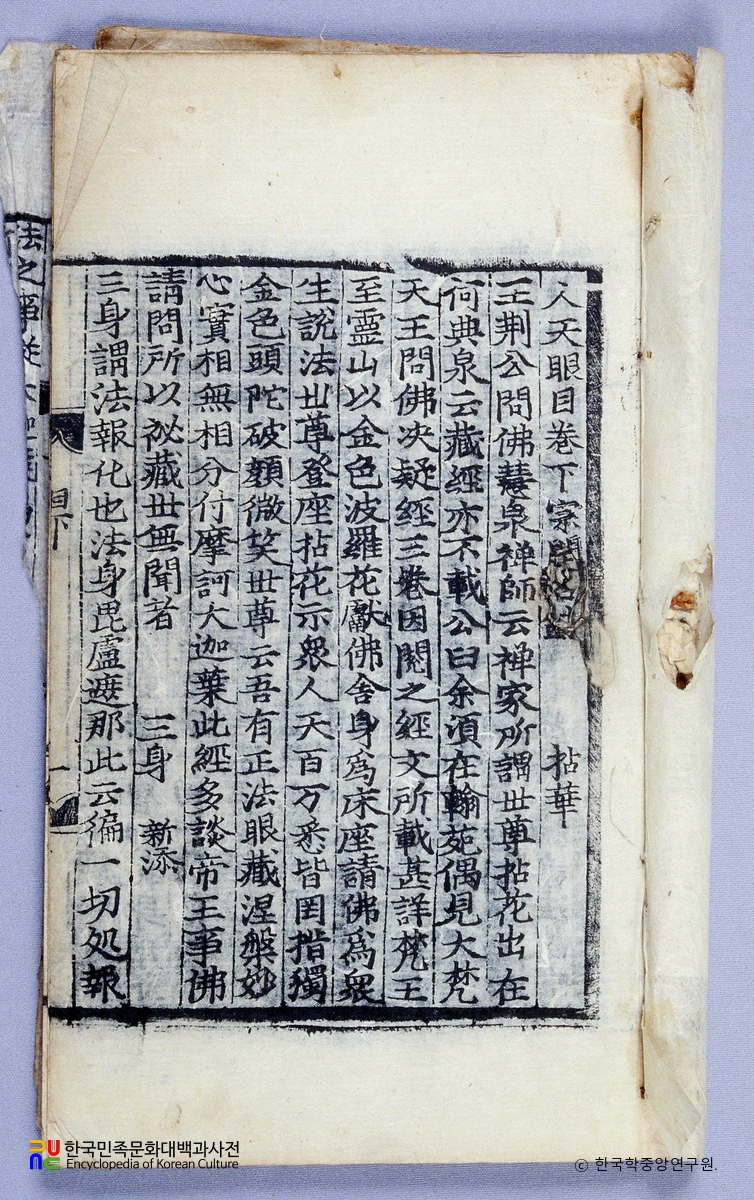 人天眼目卷下 宗門 拈華
王荆公問佛慧泉禅師云禅家所謂世尊拈花出在
何典泉云藏經亦不載公曰余頃在翰苑偶見大梵
天王問佛决疑經三卷因閱之經文所載甚詳梵王
至靈山以金色波羅花獻佛舍身為床座請佛為衆
生說法世尊登座拈花示衆人天百万悉皆罔措獨
金色頭陀破顏微笑世尊云吾有正法眼藏涅槃妙
心實相無相分付摩訶大迦葉此經多談帝王事佛
請問所以祕藏世無聞者 三身 新添
三身謂法報化也法身毘盧遮那此云徧一切処報
目下
法之事從
한국민족문화대백과사전
Encyclopedia of Korean Culture
© 한국학중앙연구원.